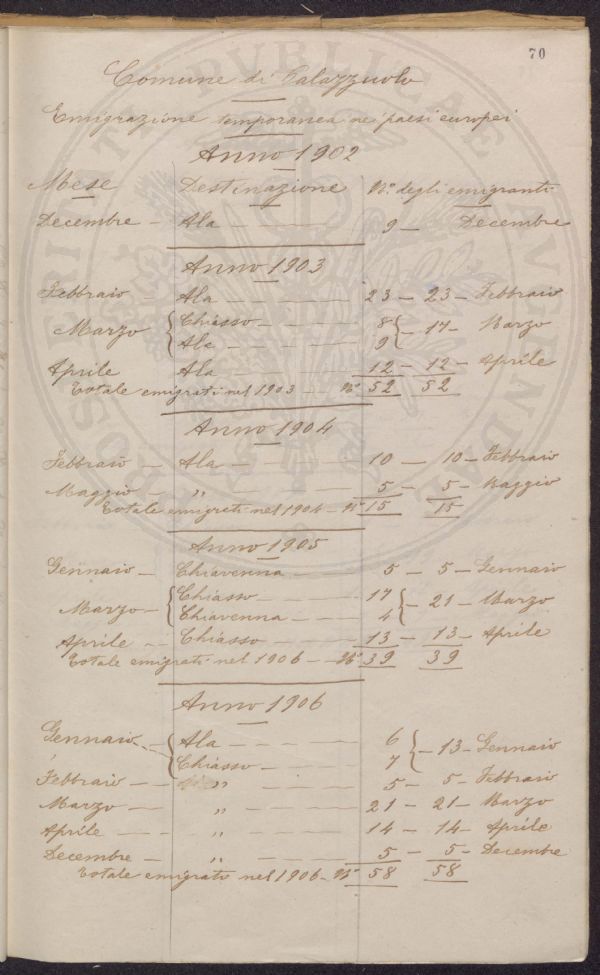 70
Comune di Palazzuolo
Emigrazione temporanea nei paesi europei
Anno 1902
Mese Destinazione N.° degli emigranti
Decembre - Ala - - - - 9 - Decembre
Anno 1903
Febbraio - Ala - - - - 23 - 23 - Febbraio
Marzo { Chiasso - - - - 8 } - 17 - Marzo
Ala - - - - 9
Aprile Ala - - - - 12 - 12 - Aprile
Totale emigrati nel 1903 - N° 52 52
Anno 1904
Febbraio - Ala - - - - 10 - 10 - Febbraio
Maggio - „ - - - - 5 - 5 - Maggio
Totale emigrati nel 1904 - N° 15 15
Anno 1905
Gennaio - Chiavenna - - - 5 - 5 - Gennaio
Marzo - { Chiasso - - - - 17 } - 21 - Marzo
Chiavenna - - - 4
Aprile - Chiasso - - - - 13 - 13 - Aprile
Totale emigrati nel 1906 - N° 39 39
Anno 1906
Gennaio - { Ala - - - - 6 } - 13 - Gennaio
Chiasso - - - - 7
Febbraio - - „ - - - - 5 - 5 - Febbraio
Marzo - - „ - - - - 21 - 21 - Marzo
Aprile - - - „ - - - - 14 - 14 - Aprile
Decembre - „ - - - - 5 - 5 - Decembre
Totale emigrati nel 1906 - N° 58 58